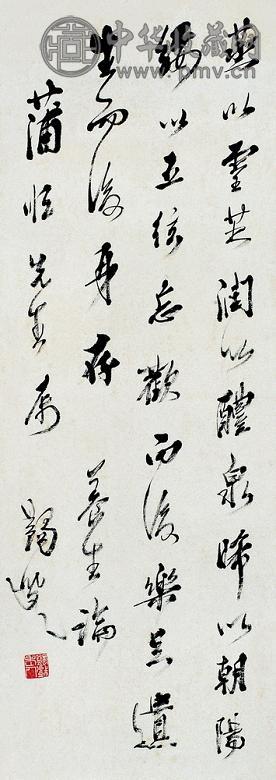 中华收藏网
www.pmv.cn
蒸以靈芝潤以醴泉晞以朝陽
綏以五絃忘歡而後樂足遺
生而後身存 養生論
蒲恒先生屬 蠲叟